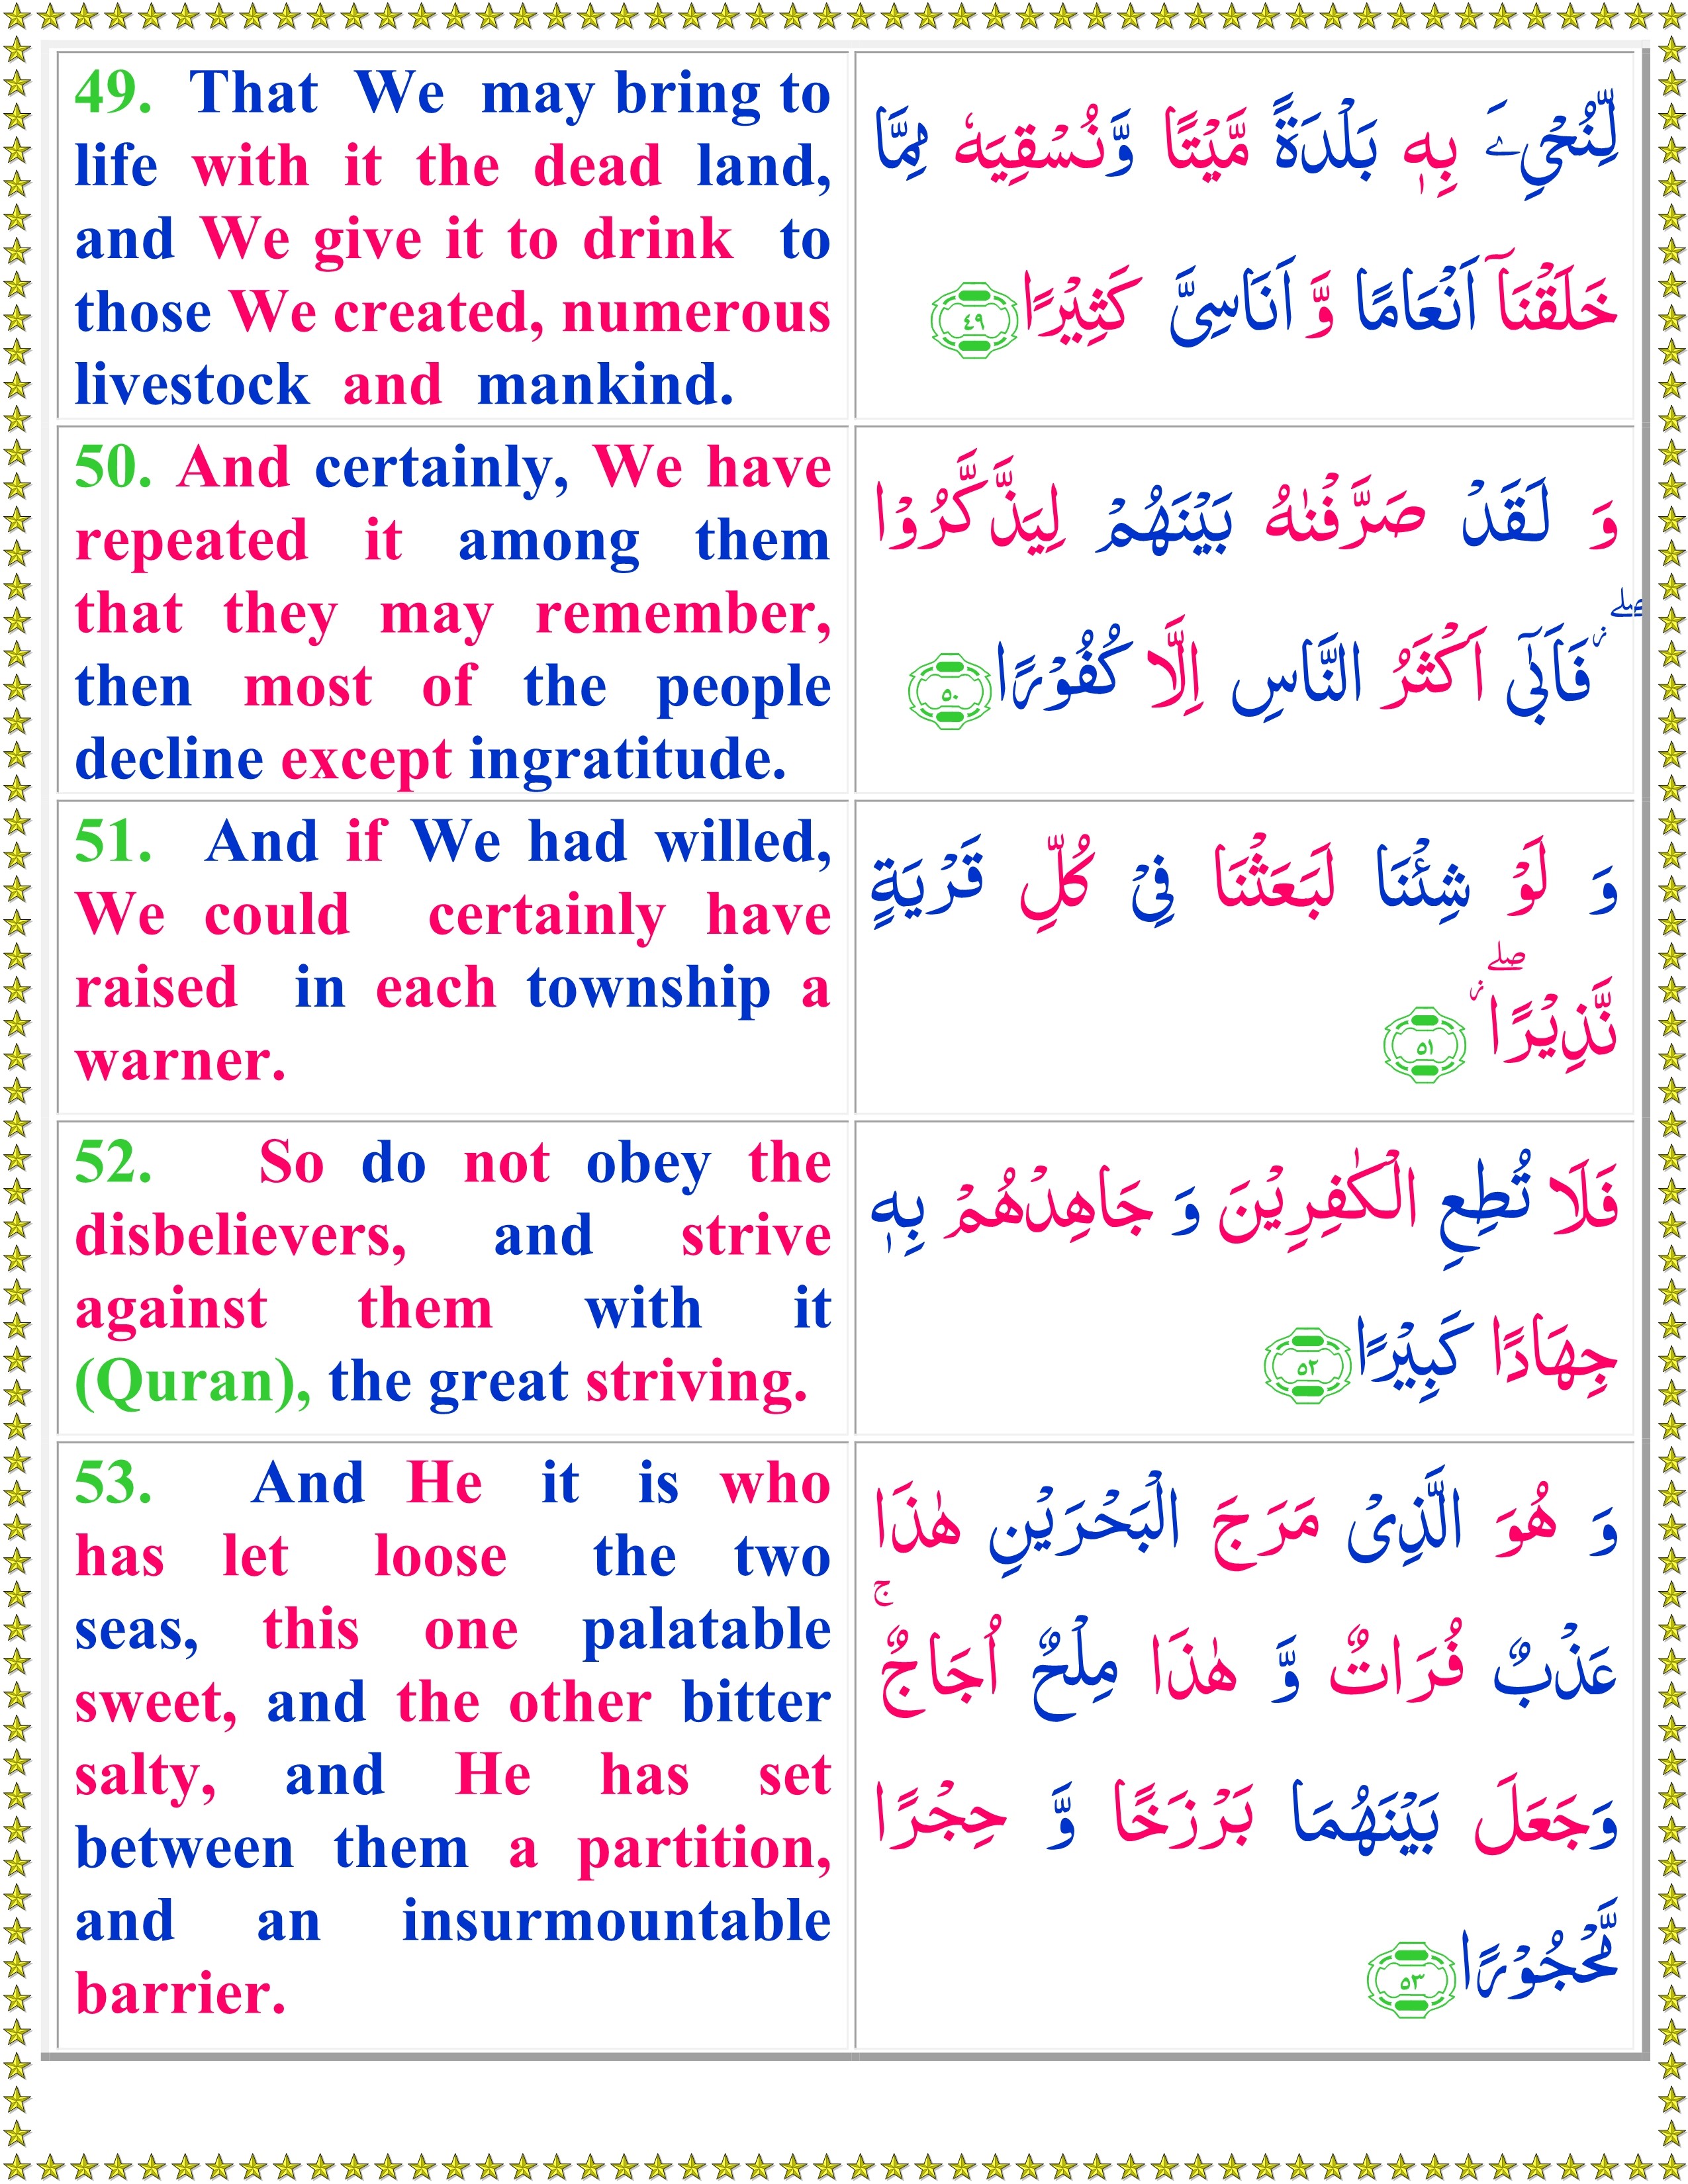 49. That We may bring to
life with it the dead land,
and We give it to drink to
those We created, numerous
livestock and mankind.
لِّنُحْیِۦَ بِهٖ بَلْدَةً مَّیْتًا وَّنُسْقِیَهٗ مِمَّا
خَلَقْنَاۤ اَنْعَامًا وَّ اَنَاسِیَّ كَثِیْرًا ٤٩
50. And certainly, We have
repeated it among them
that they may remember,
then most of the people
decline except ingratitude.
وَ لَقَدْ صَرَّفْنٰهُ بَیْنَهُمْ لِیَذَّكَّرُوْا
ۖ٘ فَاَبٰۤی اَكْثَرُ النَّاسِ اِلَّا كُفُوْرًا ٥٠
51. And if We had willed,
We could certainly have
raised in each township a
warner.
وَ لَوْ شِئْنَا لَبَعَثْنَا فِیْ كُلِّ قَرْیَةٍ
نَّذِیْرًا ۖ٘ ٥١
52. So do not obey the
disbelievers, and strive
against them with it
(Quran), the great striving.
فَلَا تُطِعِ الْكٰفِرِیْنَ وَ جَاهِدْهُمْ بِهٖ
جِهَادًا كَبِیْرًا ٥٢
53. And He it is who
has let loose the two
seas, this one palatable
sweet, and the other bitter
salty, and He has set
between them a partition,
and an insurmountable
barrier.
وَ هُوَ الَّذِیْ مَرَجَ الْبَحْرَیْنِ هٰذَا
عَذْبٌ فُرَاتٌ وَّ هٰذَا مِلْحٌ اُجَاجٌ ۚ
وَجَعَلَ بَیْنَهُمَا بَرْزَخًا وَّ حِجْرًا
مَّحْجُوْرًا ٥٣